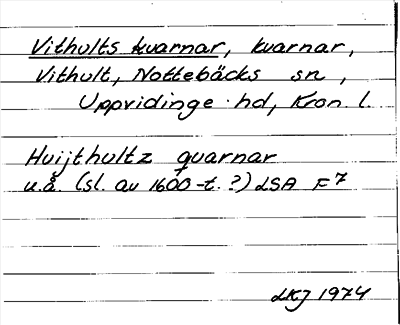 Vithults kvarnar, kvarnar,
Vithult, Nottebäcks sn,
Uppvidinge hd, Kron. l.
Huijthultz quarnar
u.å. (sl. av 1600-t.?) LSA F7
LKJ 1974